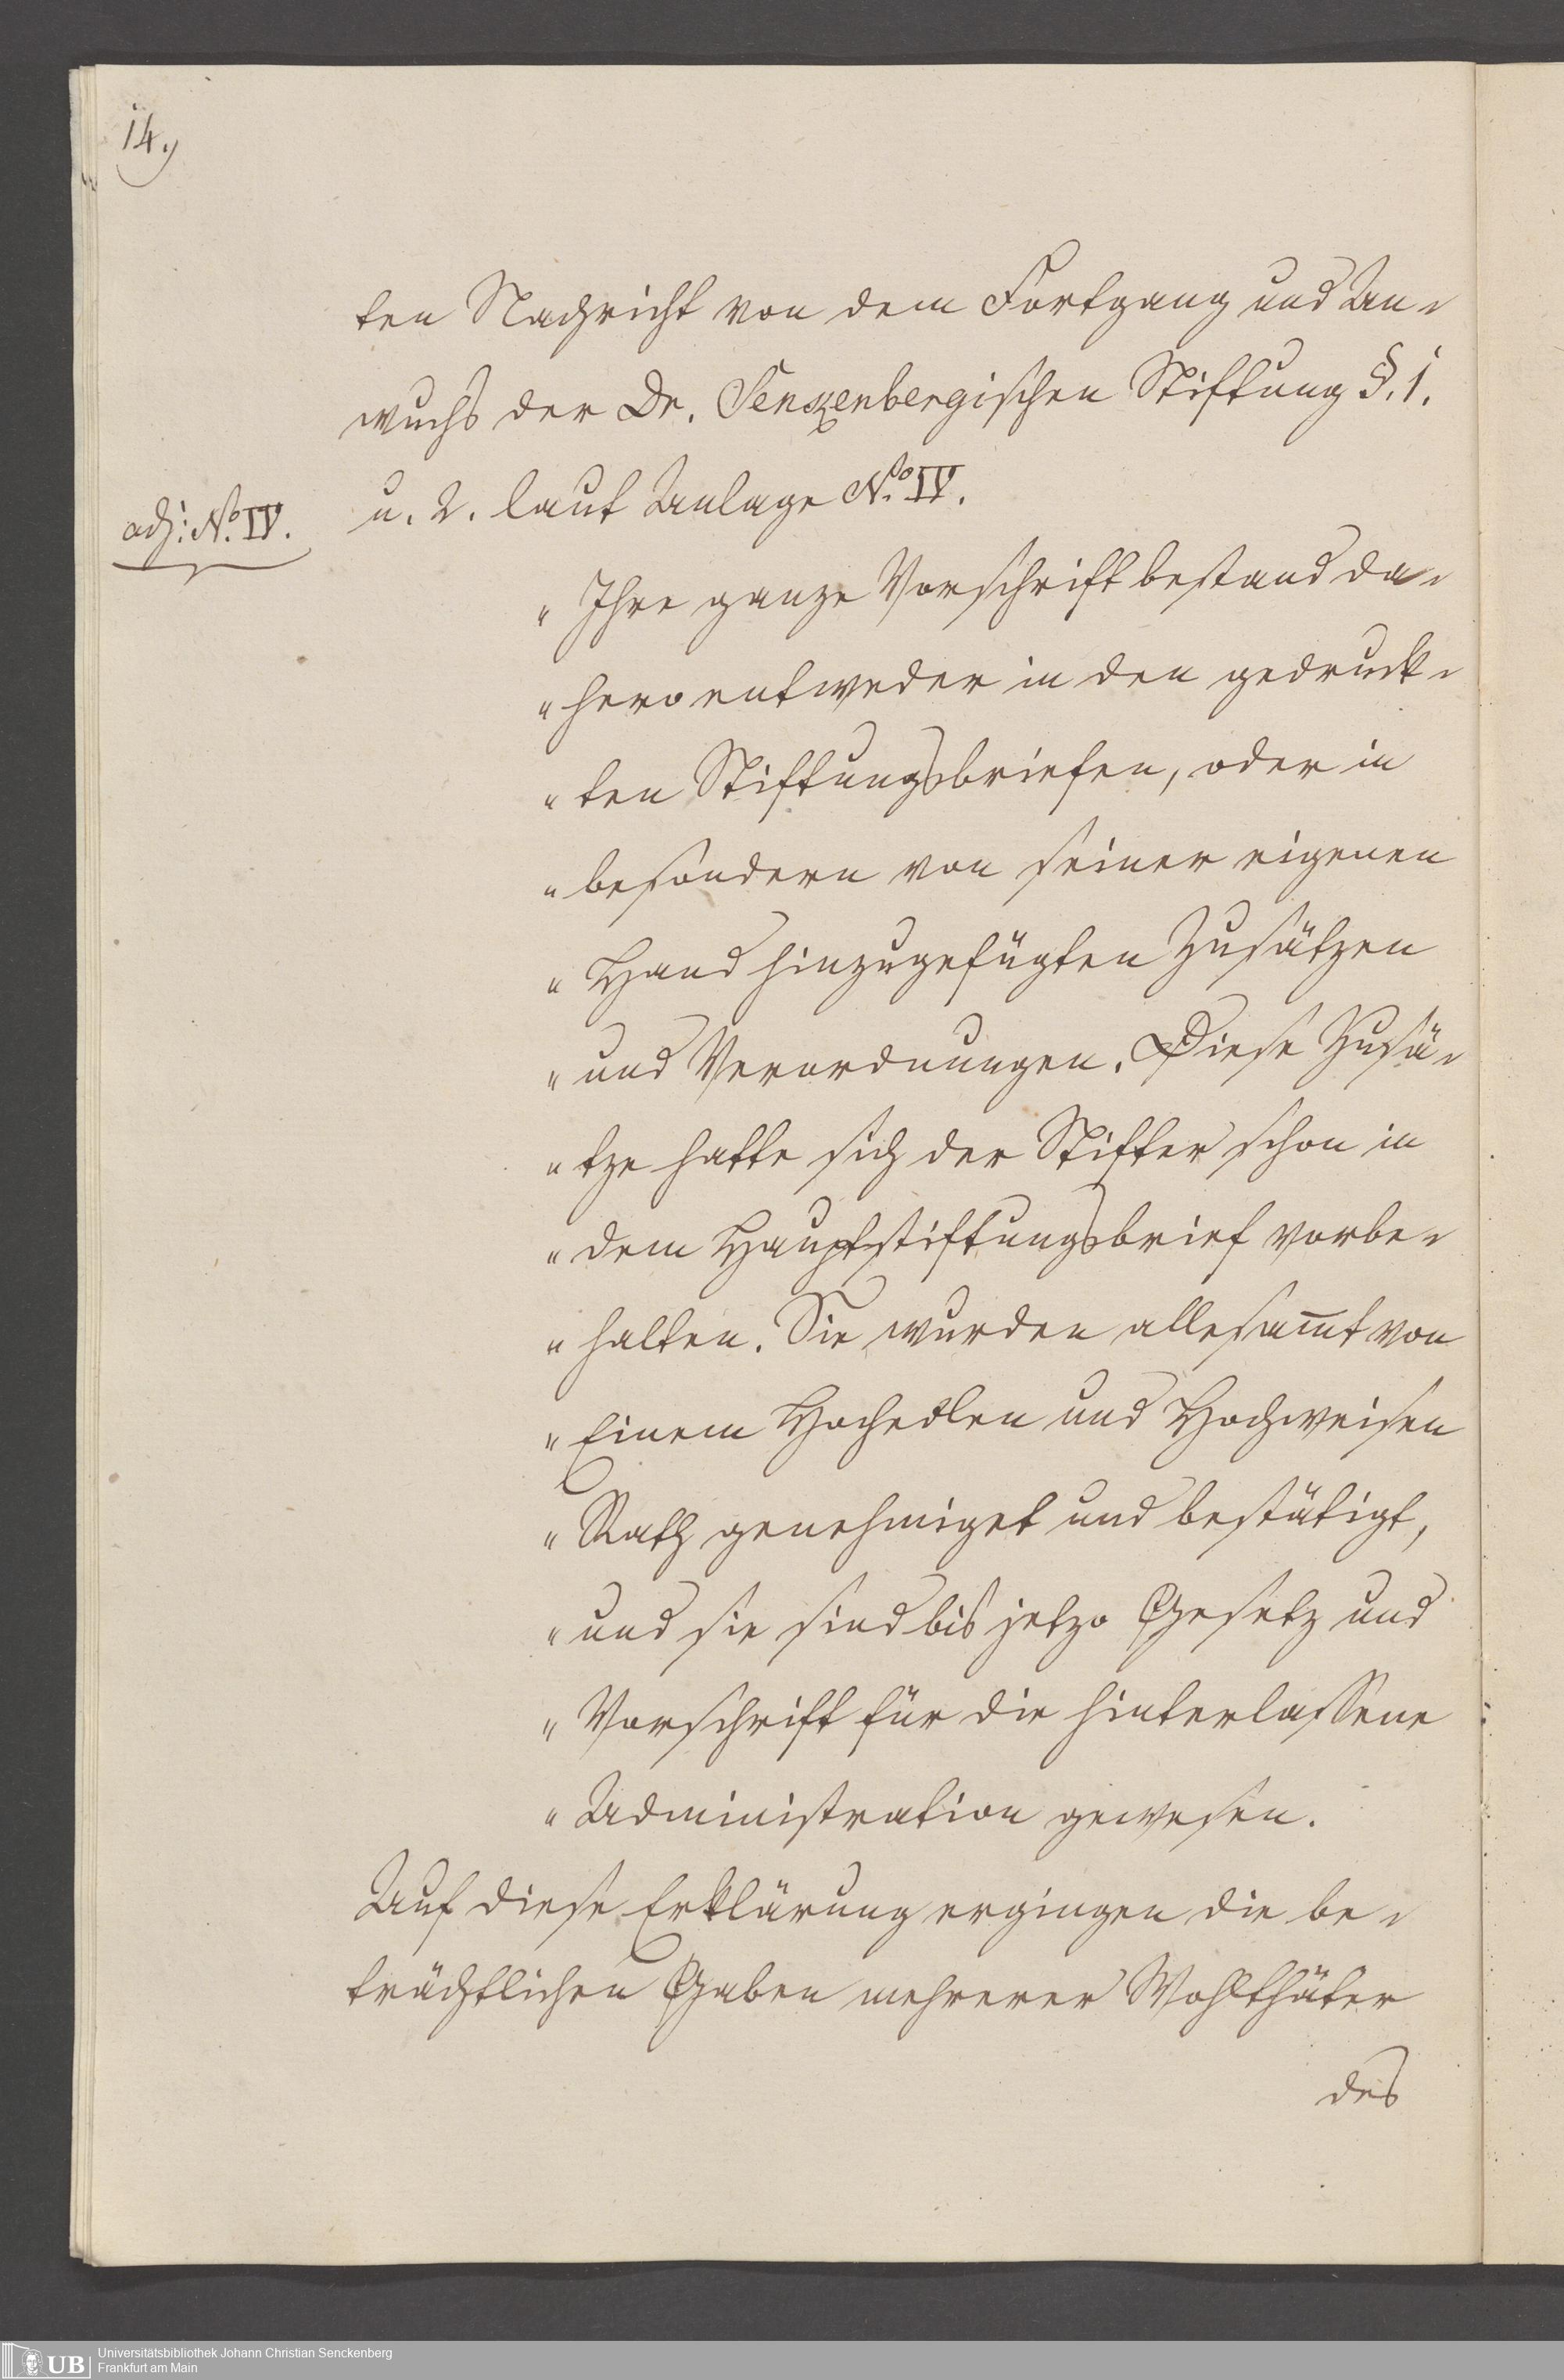 14.)
ten Nachricht von dem Fortgang und An-
wuchs der Dr. Senckenbergischen Stiftung §. 1.
u. 2. laut Anlage No. IV.
adj: No. IV.
„ Ihre ganze Vorschrift bestand da-
„ hero entweder in den gedruck-
„ ten Stiftungsbriefen, oder in
„ besondern von seiner eigenen
„ Hand hinzugefügten Zusätzen
„ und Verordnungen. Diese Zusä-
„ tze hatte sich der Stifter schon in
„ dem Hauptstiftungsbrief vorbe-
„ halten. Sie wurden allesam̅t von
„ Einem Hochedlen und Hochweisen
„ Rath genehmiget und bestätigt,
„ und sie sind bis jetzo Gesetz und
„ Vorschrift für die hinterlassene
„ Administration gewesen.
Auf diese Erklärung ergingen die be-
trächtlichen Gaben mehrerer Wohlthäter
des
UB
Universitätsbibliothek Johann Christian Senckenberg
Frankfurt am Main